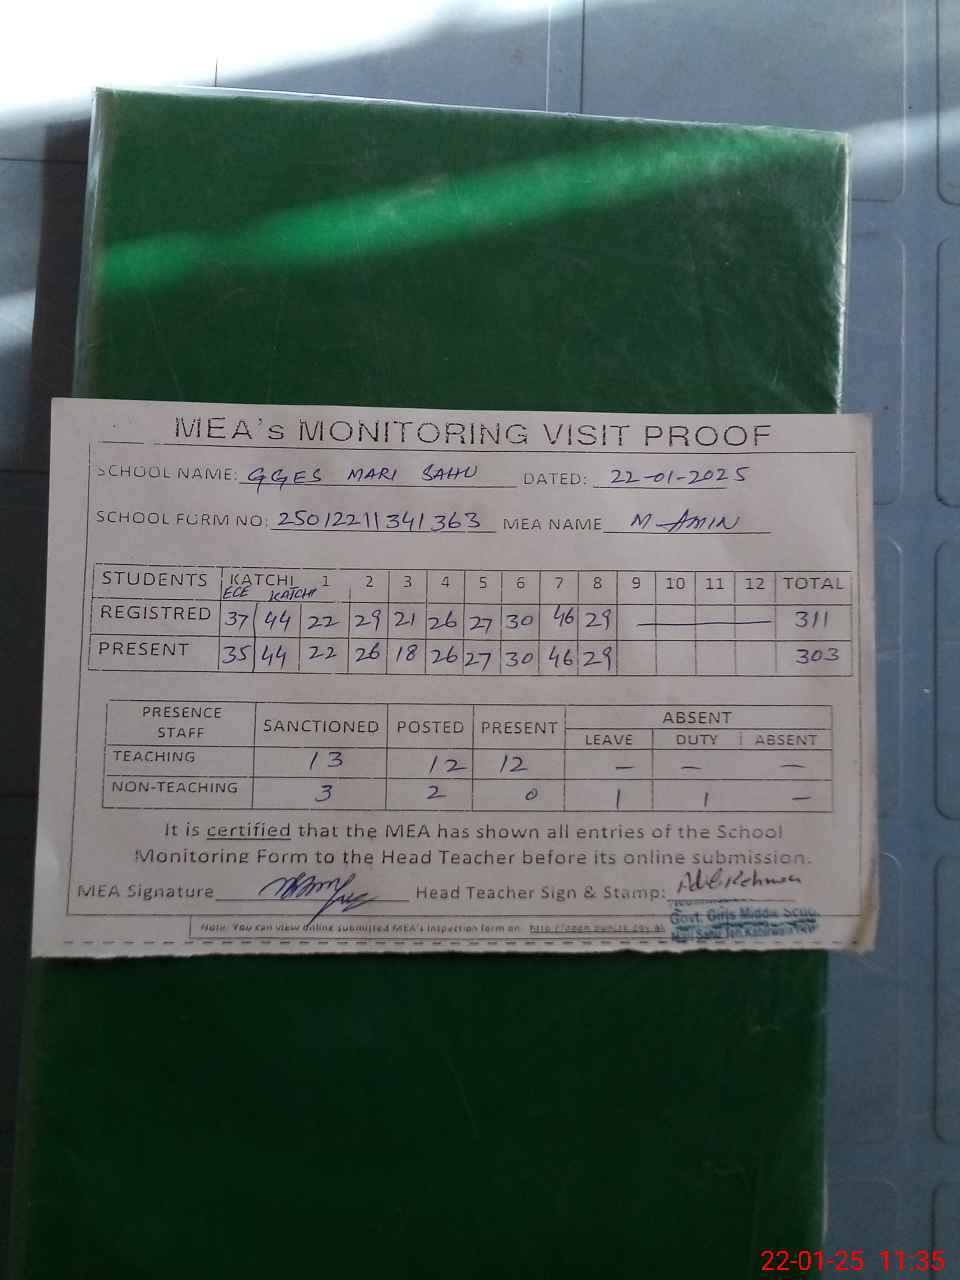 MEA's MONITORING VISIT PROOF
SCHOOL NAME: GGES MARI SAHU DATED: 22-01-2025
SCHOOL FORM NO: 25012211341363 MEA NAME M-AMIN
STUDENTS KATCHI 1 2 3 4 5 6 7 8 9 10 11 12 TOTAL
ECE KATCHI
REGISTRED 37 44 22 29 21 26 27 30 46 29 — 311
PRESENT 35 44 22 26 18 26 27 30 46 29 303
PRESENCE STAFF SANCTIONED POSTED PRESENT ABSENT
LEAVE DUTY ABSENT
TEACHING 13 12 12 — — —
NON-TEACHING 3 2 0 1 1 —
It is certified that the MEA has shown all entries of the School
Monitoring Form to the Head Teacher before its online submission.
MEA Signature Head Teacher Sign & Stamp:
Govt. Girls Middle
Note: You can view online submitted MEA's inspection form on
Mari Sahu
22-01-25 11:35